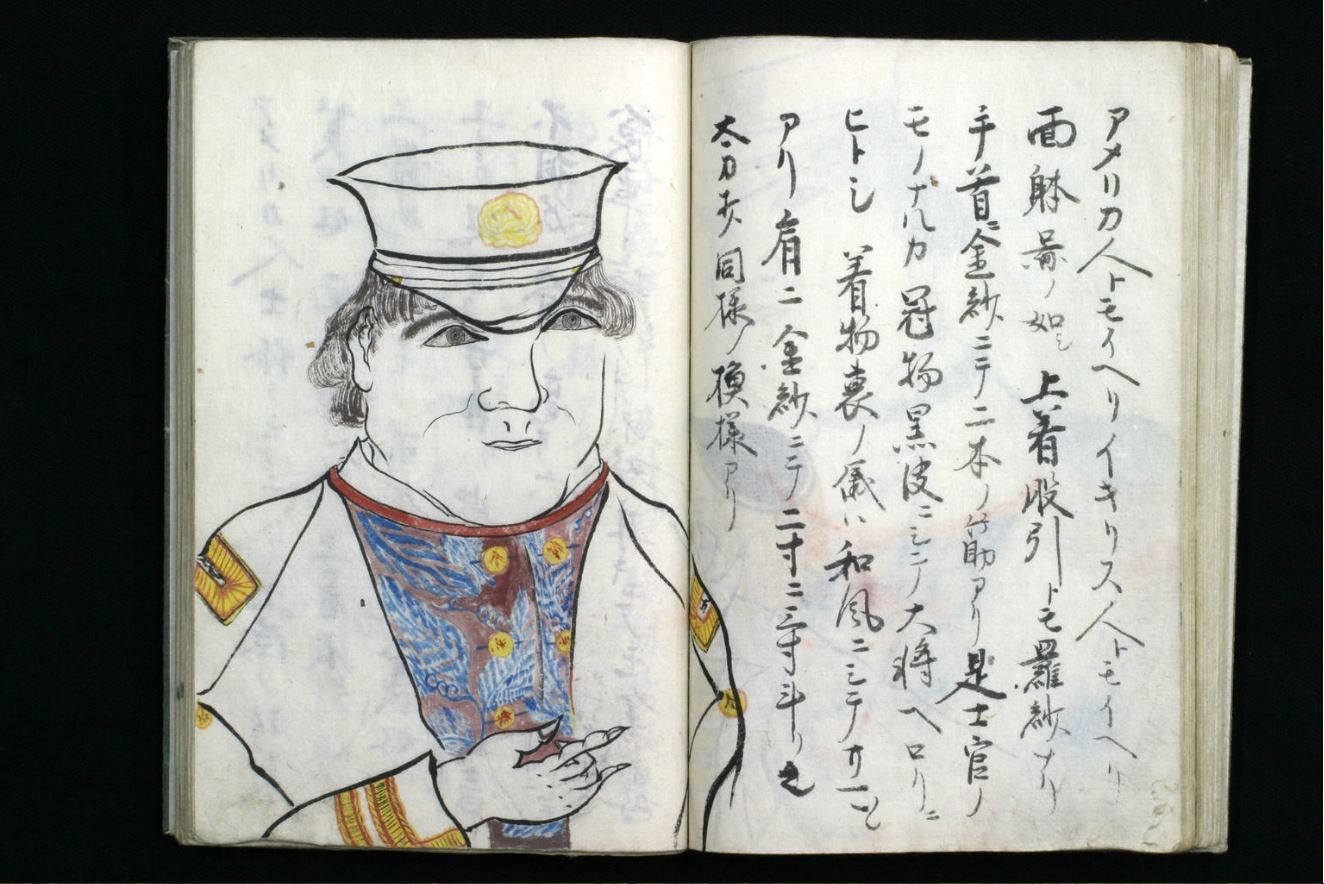 アメリカ人トモイヘリイキリス人トモイヘリ
面躰景ノ如シ 上着股引トモ羅紗ナリ
手首ニ金紗ニテ二本ノ筋アリ是士官ノ
モノナルカ冠物黒皮ニシテ大将ヘロリニ
ヒトシ 着物裏ノ儀ハ和風ニシテカ
アリ肩ニ金紗ニテ二寸ニ三寸斗リ之
太刀 同様ノ模様アリ